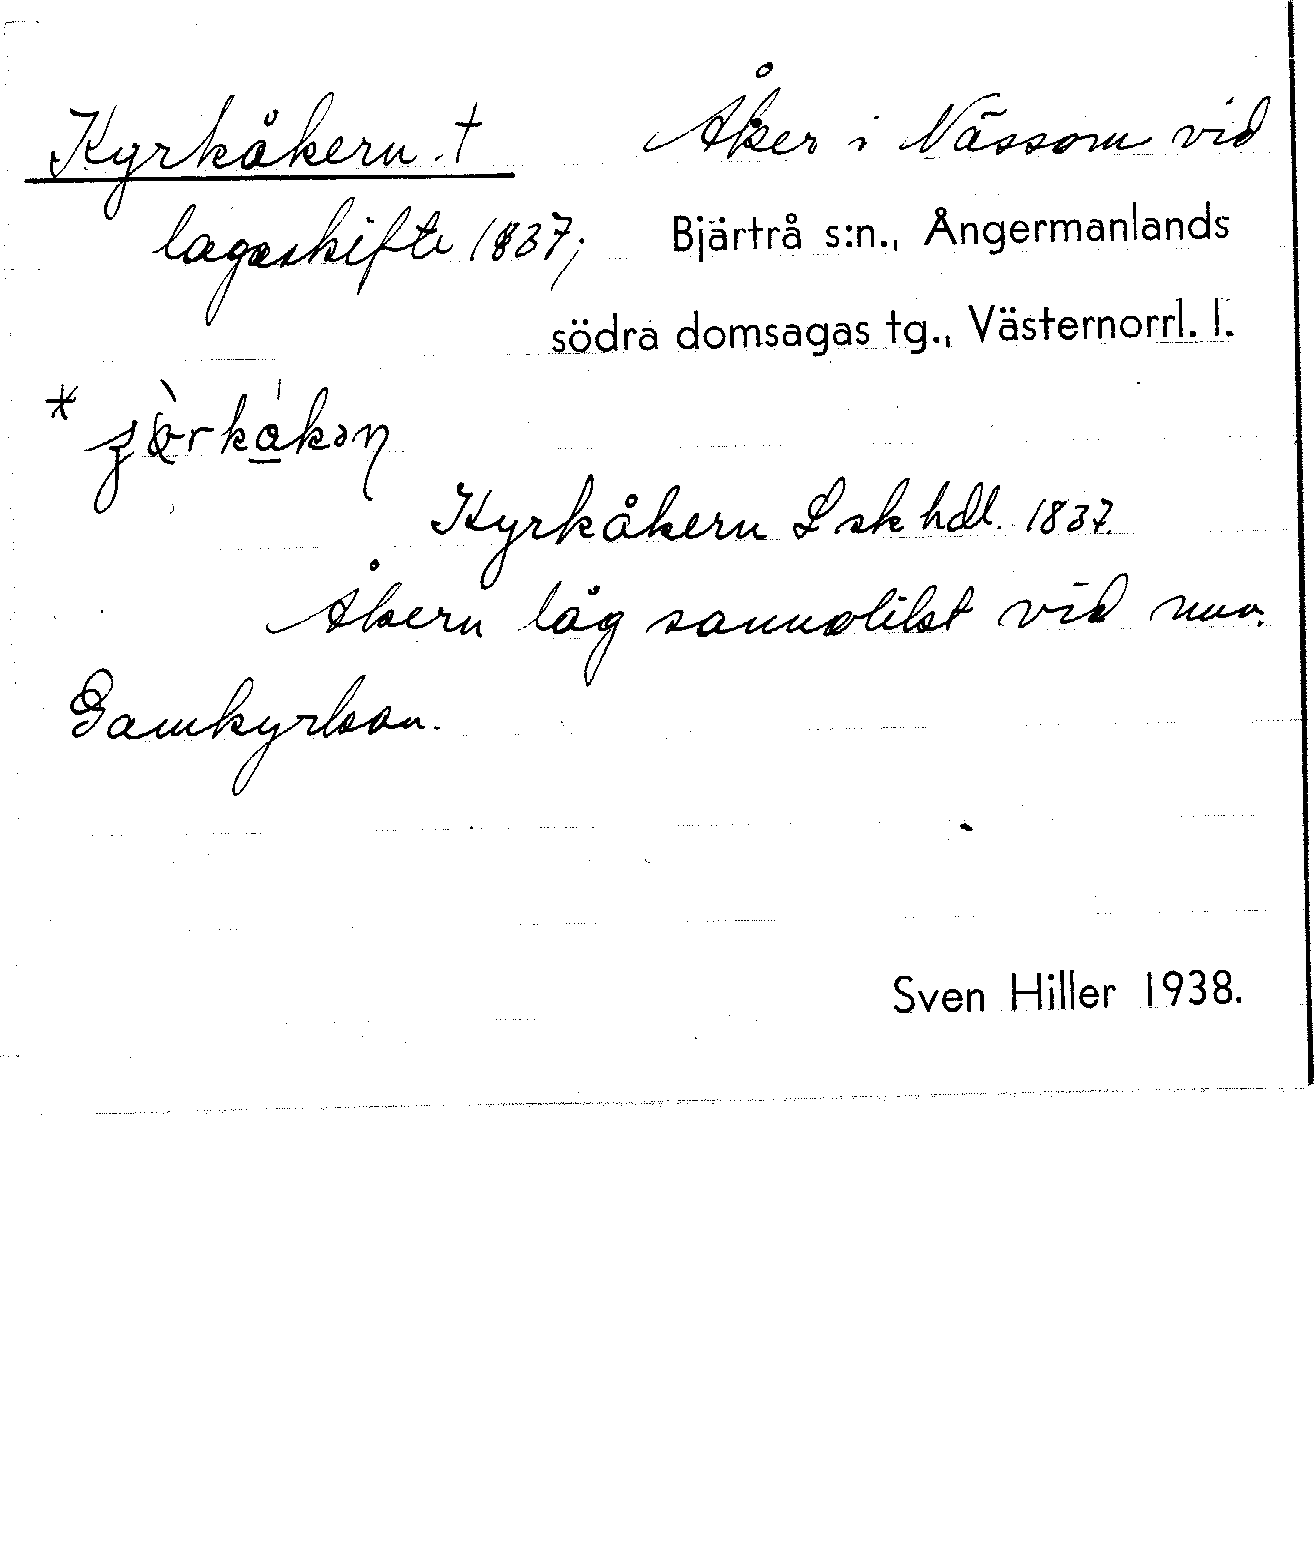 Kyrkåkern. † Åker i Nässom vid
lagaskifte 1837; Bjärtrå s:n., Ångermanlands
södra domsagas tg., Västernorrl. l.
Kyrkåkern L sk hdl. 1837.
Åkern låg sannolikt vid nuv.
Gamkyrkan.
Sven Hiller 1938.